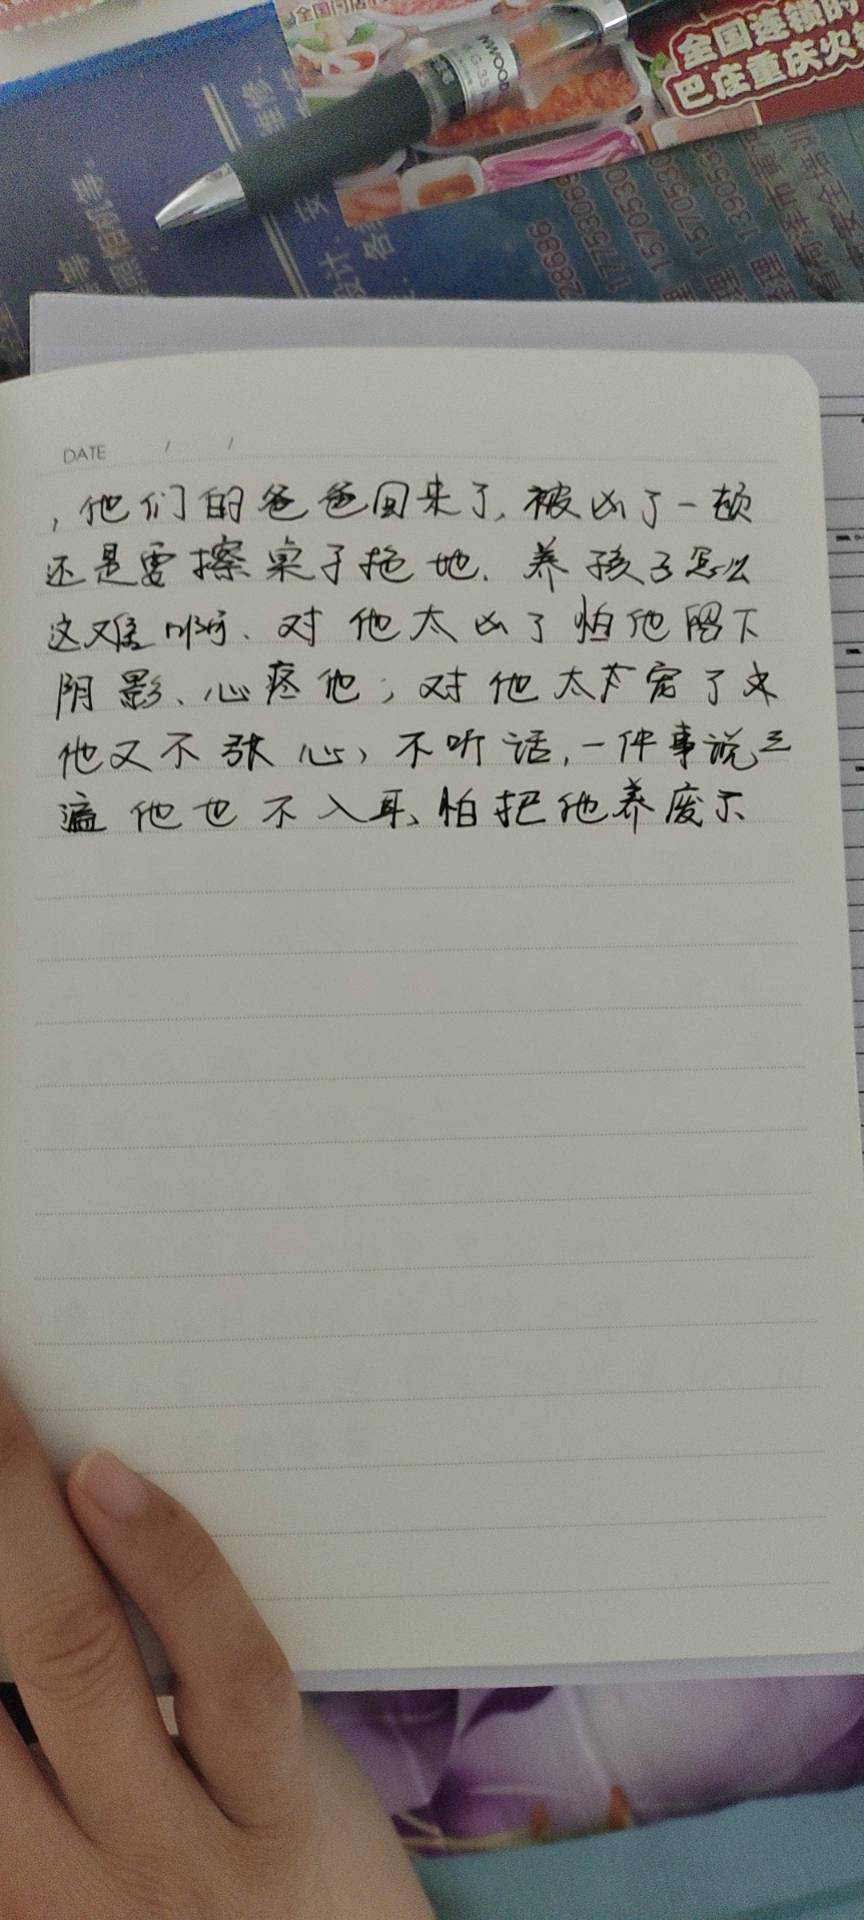 全国连锁
巴庄重庆火
DATE / /
，他们的爸爸回来了，被凶了一顿
还是要擦桌子拖地、养孩子怎么
这难啊、对他太凶了怕他留下
阴影、心疼他；对他太宠了
他又不张心，不听话，一件事说三
遍他也不入耳、怕把他养废了